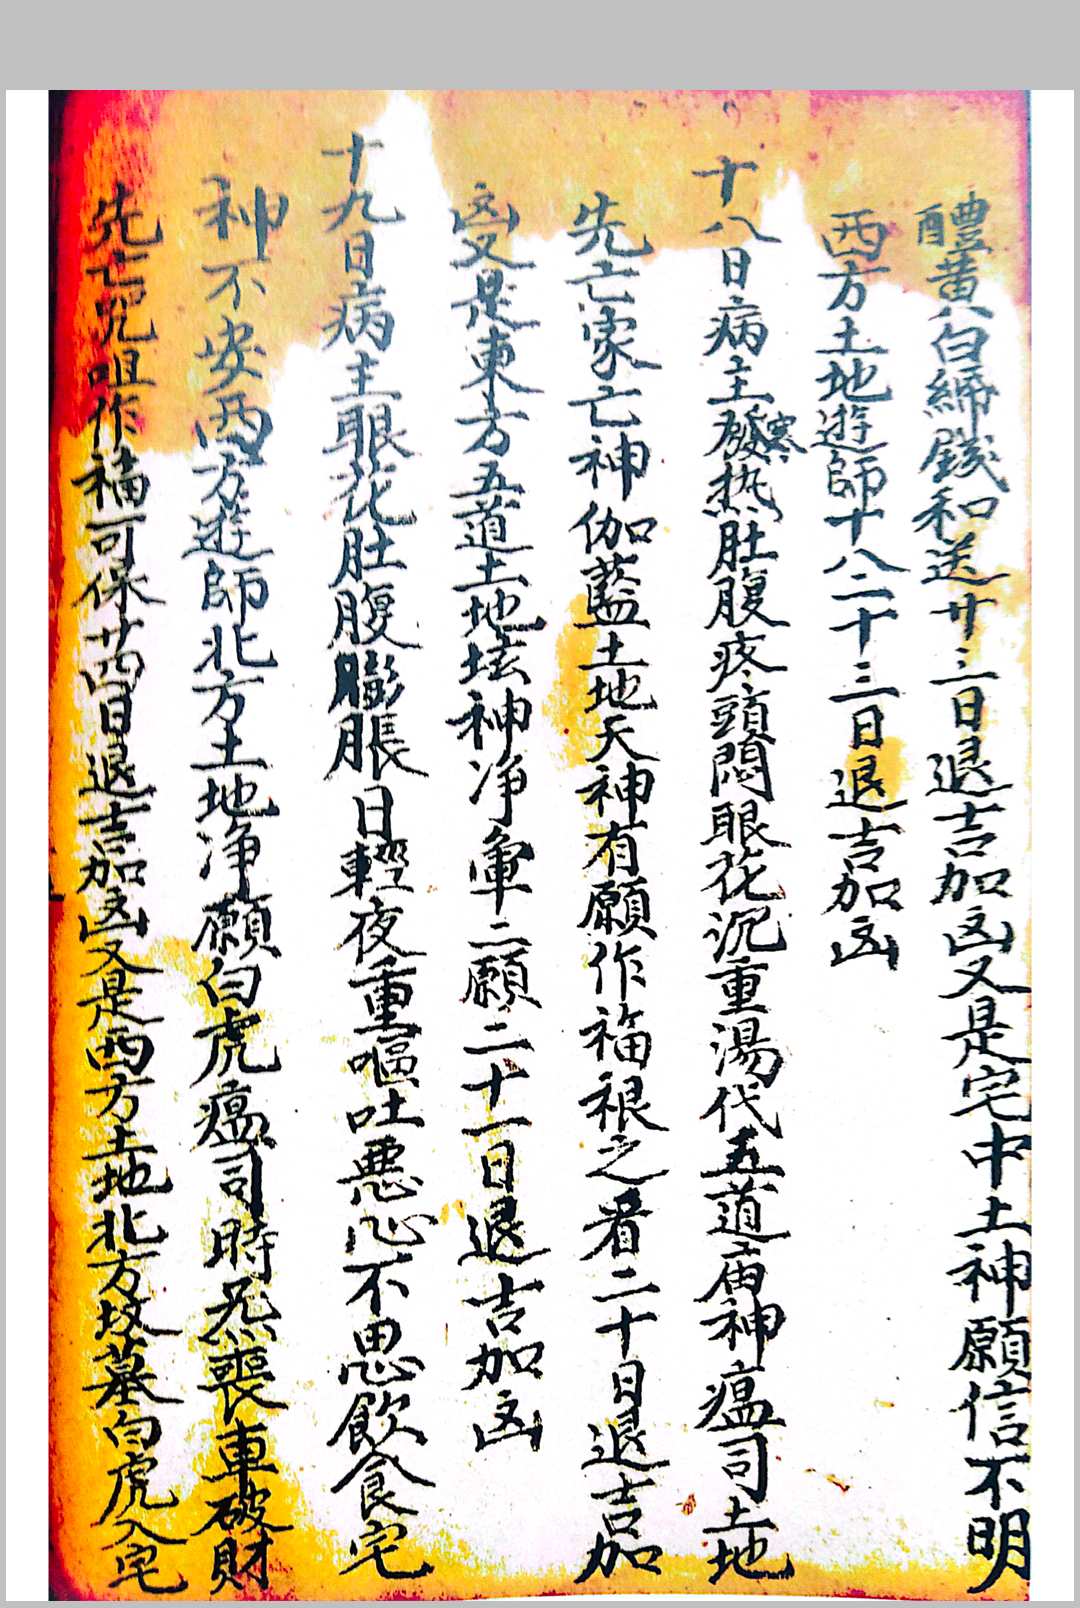 醴黄八白綿錢和送廿三日退吉加凶又是宅中土神願信不明
西方土地遊師十八二十三日退吉加凶
十八日病主發寒熱肚腹疼頭悶眼花沉重湯代五道庙神瘟司土地
先亡家亡神伽藍土地天神有願作福根之看二十日退吉加
凶又是東方五道土地坛神净軍二願二十一日退吉加凶
十九日病主眼花肚腹膨脹日輕夜重嘔吐悪心不思飲食宅
神不安西方遊師北方土地净願白虎瘟司時炁喪車破財
先亡咒咀作福可保廿四日退吉加凶又是西方土地北方坟墓白虎入宅